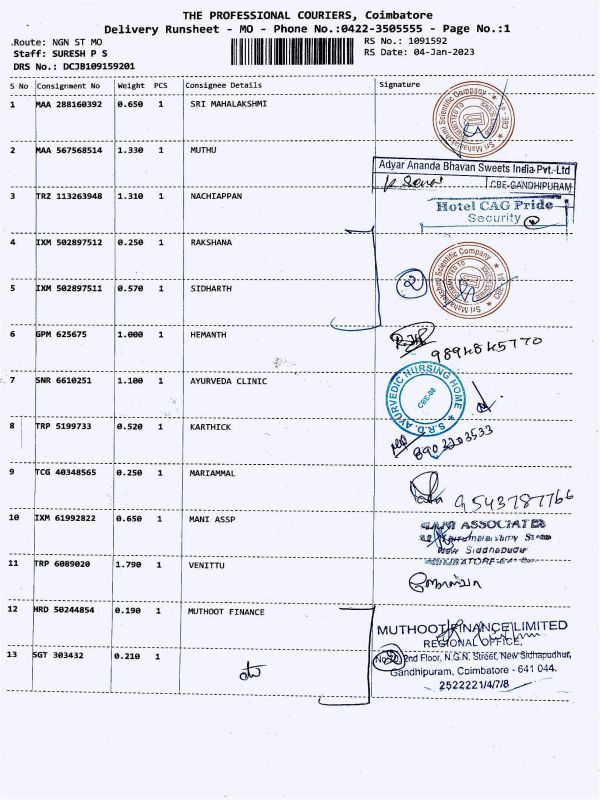 THE PROFESSIONAL COURIERS, Coimbatore
Delivery Runsheet - MO - Phone No.:0422-3505555 - Page No.:1
Route: NGN ST MO
RS No.: 1091592
Staff: SURESH P S
RS Date: 04-Jan-2023
DRS No.: DCJB109159201
S No Consignment No Weight PCS Consignee Details Signature
1 MAA 288160392 0.650 1 SRI MAHALAKSHMI
Sri Mahalakshmi Scientific Company
2 MAA 567568514 1.330 1 MUTHU
Adyar Ananda Bhavan Sweets India Pvt. Ltd
CBE-GANDHIPURAM
3 TRZ 113263948 1.310 1 NACHIAPPAN
Hotel CAG Pride
Security
4 IXM 502897512 0.250 1 RAKSHANA
Sri Mahalakshmi Scientific Company
2
5 IXM 502897511 0.570 1 SIDHARTH
6 GPM 625675 1.000 1 HEMANTH
9894845770
7 SNR 6610251 1.100 1 AYURVEDA CLINIC
S.R.D. AYURVEDIC NURSING HOME
CBE-08
8 TRP 5199733 0.520 1 KARTHICK
8903203533
9 TCG 40348565 0.250 1 MARIAMMAL
9543787766
10 IXM 61992822 0.650 1 MANI ASSP
ASSOCIATES
New Siddhapudur
11 TRP 6089020 1.790 1 VENITTU
12 HRD 50244854 0.190 1 MUTHOOT FINANCE
MUTHOOT FINANCE LIMITED
REGIONAL OFFICE
13 SGT 303432 0.210 1
2nd Floor, N.G.N. Street, New Sidhapudhur,
Gandhipuram, Coimbatore - 641 044.
2522221/4/7/8